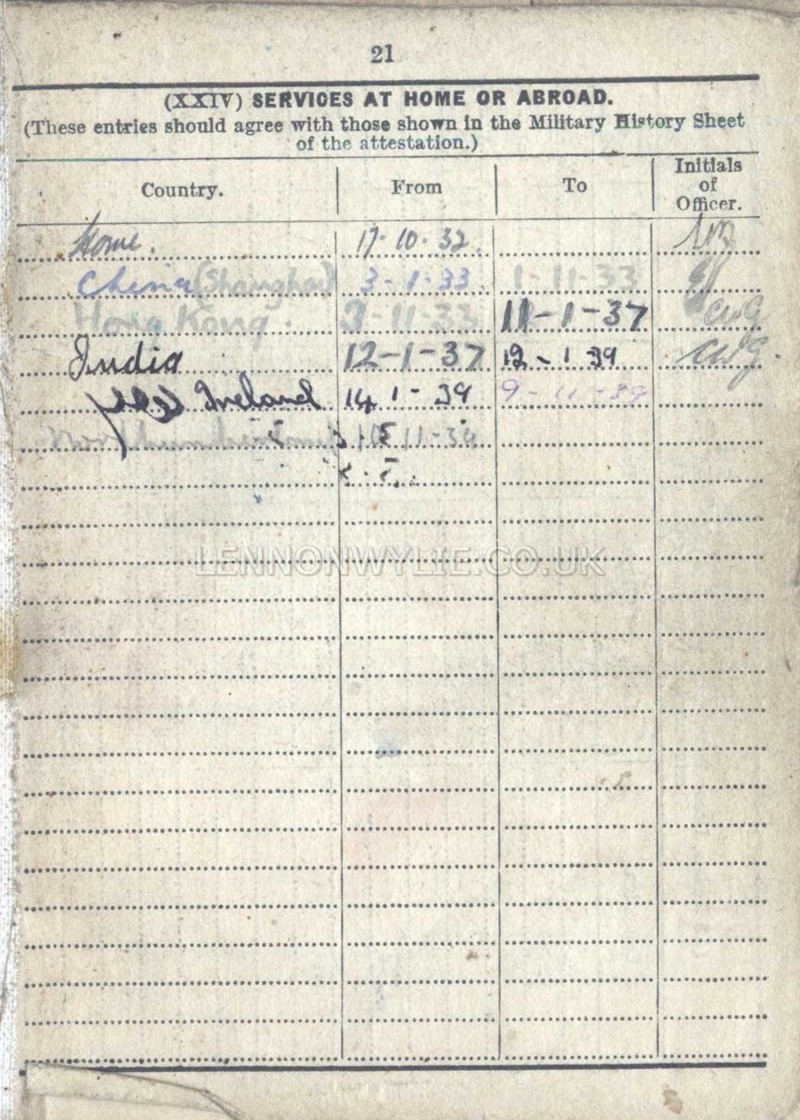 21
(XXIV) SERVICES AT HOME OR ABROAD.
(These entries should agree with those shown in the Military History Sheet
of the attestation.)
Country. From To Initials of Officer.
Home. 17-10-32
China (Shanghai) 3-1-33. 1-11-33
Hong Kong. 3-11-33 11-1-37 CWG
India 12-1-37 12-1-39 CWG.
Ireland 14 1-39 9-11-39
11-39
LENNONWYLIE.CO.UK